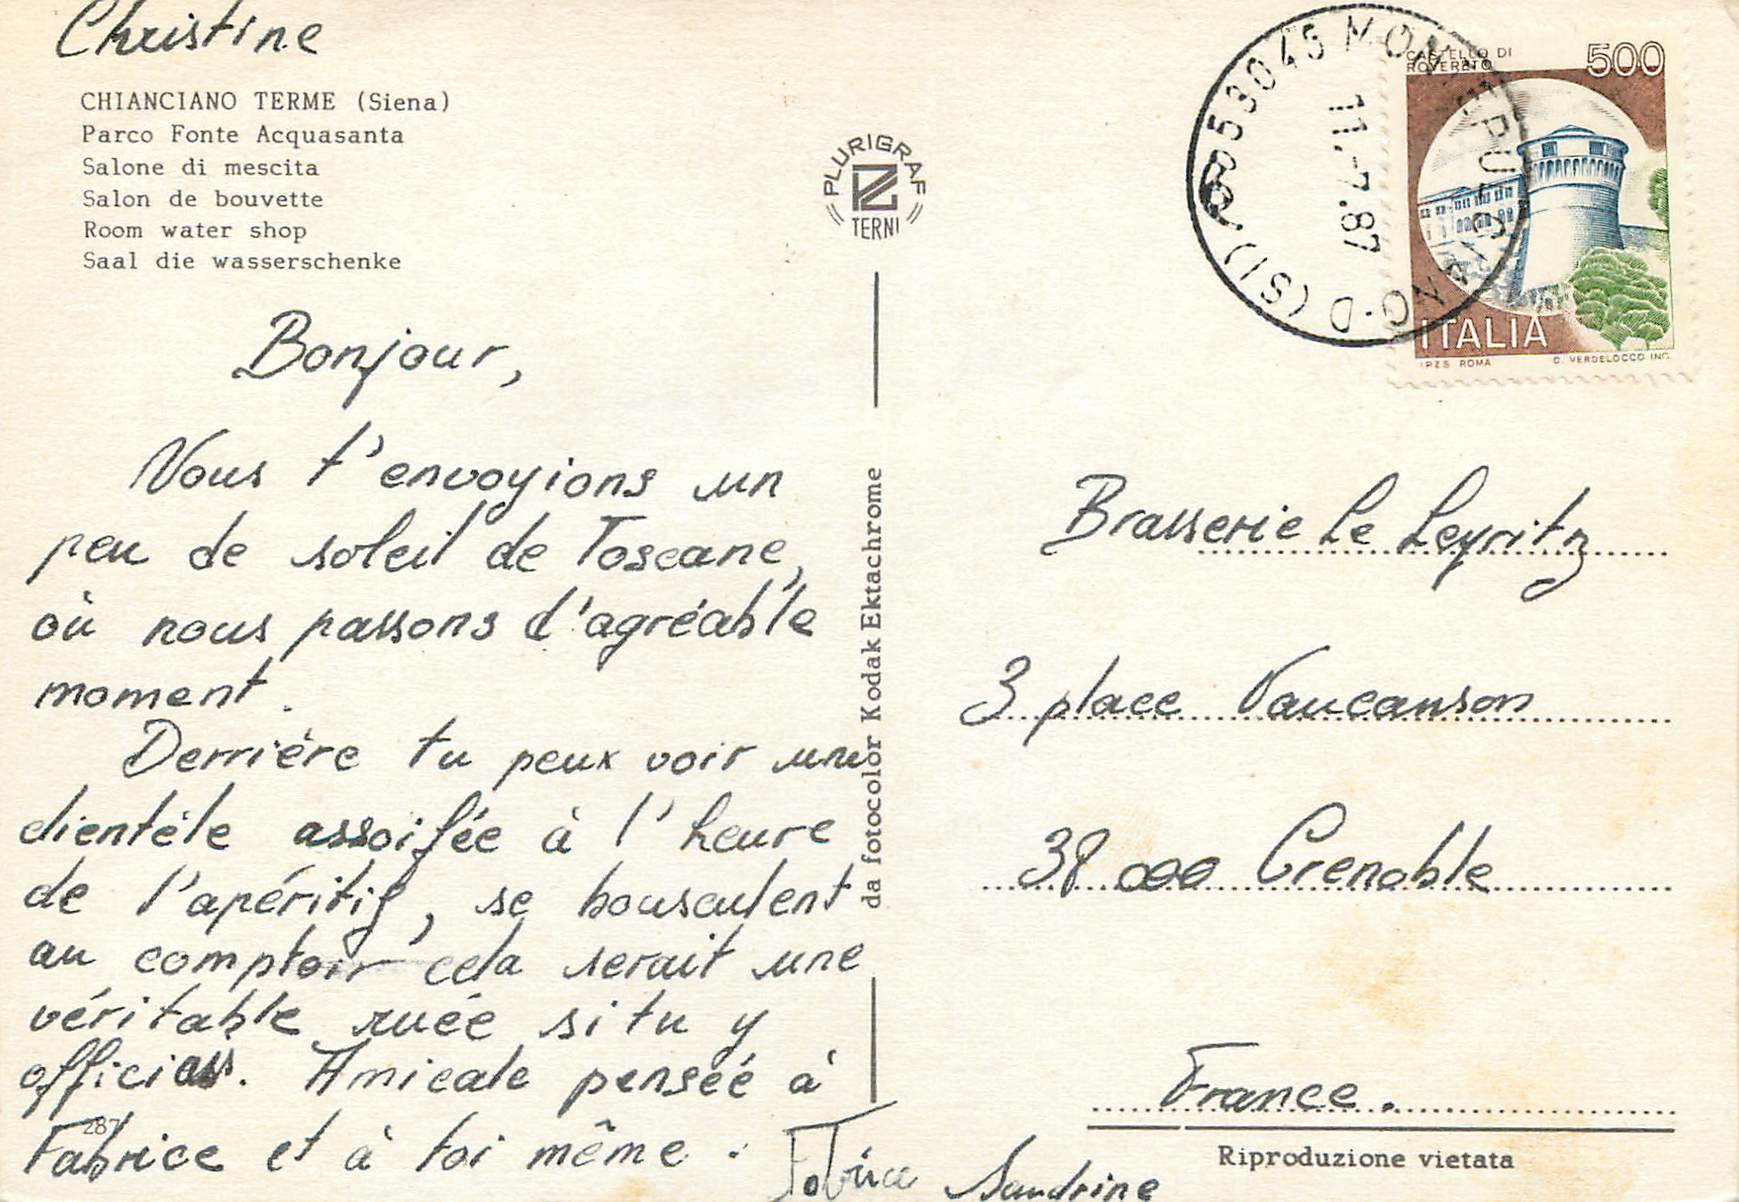 Christine
CHIANCIANO TERME (Siena)
Parco Fonte Acquasanta
Salone di mescita
Salon de bouvette
Room water shop
Saal die wasserschenke
Bonjour,
Nous t'envoyions un
peu de soleil de Toscane,
où nous passons d'agréable
moment.
Derrière tu peux voir une
clientèle assoifée à l'heure
de l'apéritif, se bousculent
au comptoir cela serait une
véritable ruée si tu y
officiais. Amicale pensée à
Fabrice et à toi même.
287
Sandrine
PLURIGRAF
TERNI
da fotocolor Kodak Ektachrome
53045 MONTEPULCIANO·D (SI)
11.-7.87
CASTELLO DI
ROVERETO
500
ITALIA
I.P.Z.S. ROMA
O. VERDELOCCO INC.
Brasserie Le Leyritz
3 place Vaucanson
38 000 Grenoble
France.
Riproduzione vietata